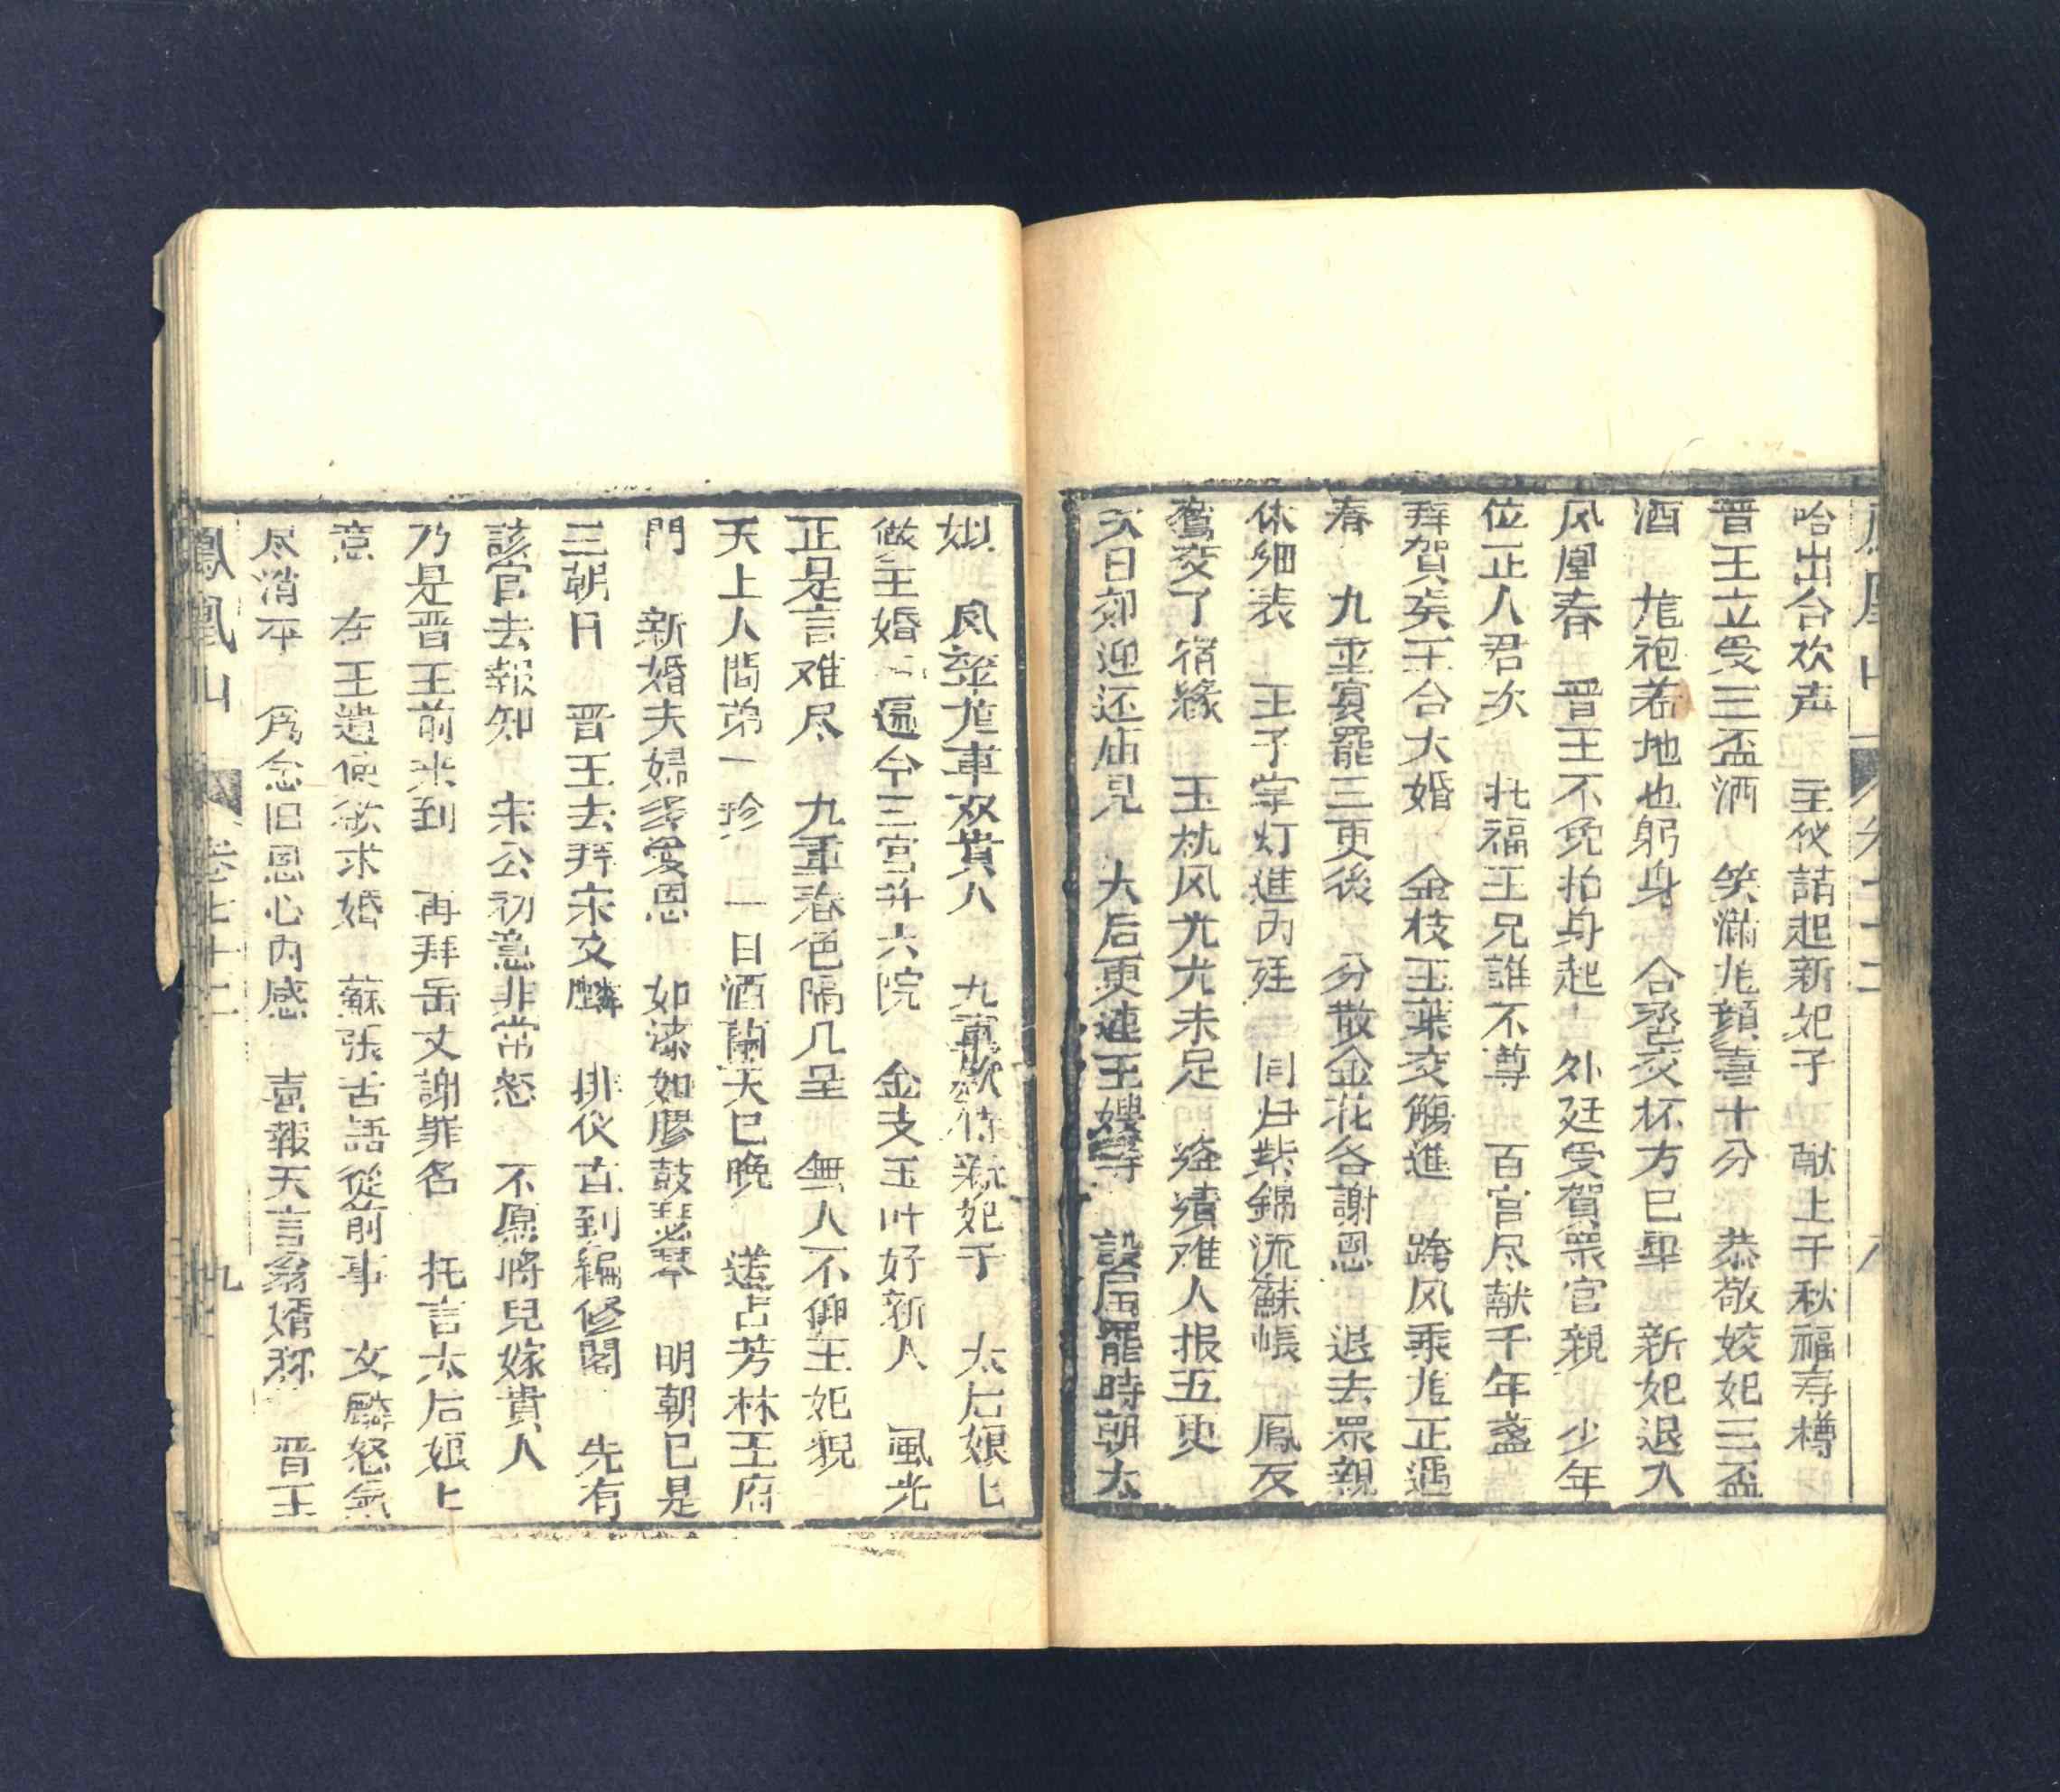 哈出合欢声　主仪詰起新妃子　献上千秋福寿樽
晋王立受三盃酒　笑滿尨顔喜十分　恭敬姣妃三盃
酒　尨袍若地也躬身　合丞交杯方已畢　新妃退入
凤凰春　晋王不免抬身起　外廷受賀眾官親　少年
位正人君次　北福王兄誰不尊　百官尽献千年盞
拜賀矣王合大婚　金枝玉葉交觴進　跨凤乘尨正遇
春　九重宾罷三更後　分散金花各謝恩　退去眾親
休細表　王子掌灯進內廷　同归紫錦流蘇帳　鳳友
鸞交了宿緣　玉枕风光尤未足　难人报五更
次日郊迎还庙見　大后更連王嫂等　設屈罷時朝太
姒　凤輦尨車双貴人　九重欵待新妃子　太后娘匕
做主婚　遍今三宫并六院　金支玉叶好新人　風光
正是言难尽　九重春色隔几呈　無人不仰王妃貌
天上人間弟一珍　一日酒蘭天已晚　送占芳林王府
門　新婚夫婦多愛恩　如漆如膠鼓瑟琴　明朝已是
三朝日　晋王去拜宋文麟　排仪古到編修閣　先有
該官去報知　宋公初意非常怒　不愿將兒嫁貴人
乃是晋王前来到　再拜岳丈謝罪名　托言太后娘匕
意　在王遣使欲求婚　蘇張舌語從前事　文麟怒氣
尽消平　爲念旧恩心內感　喜報天言翁婿称　晋王
鳳凰山　卷七十二　九